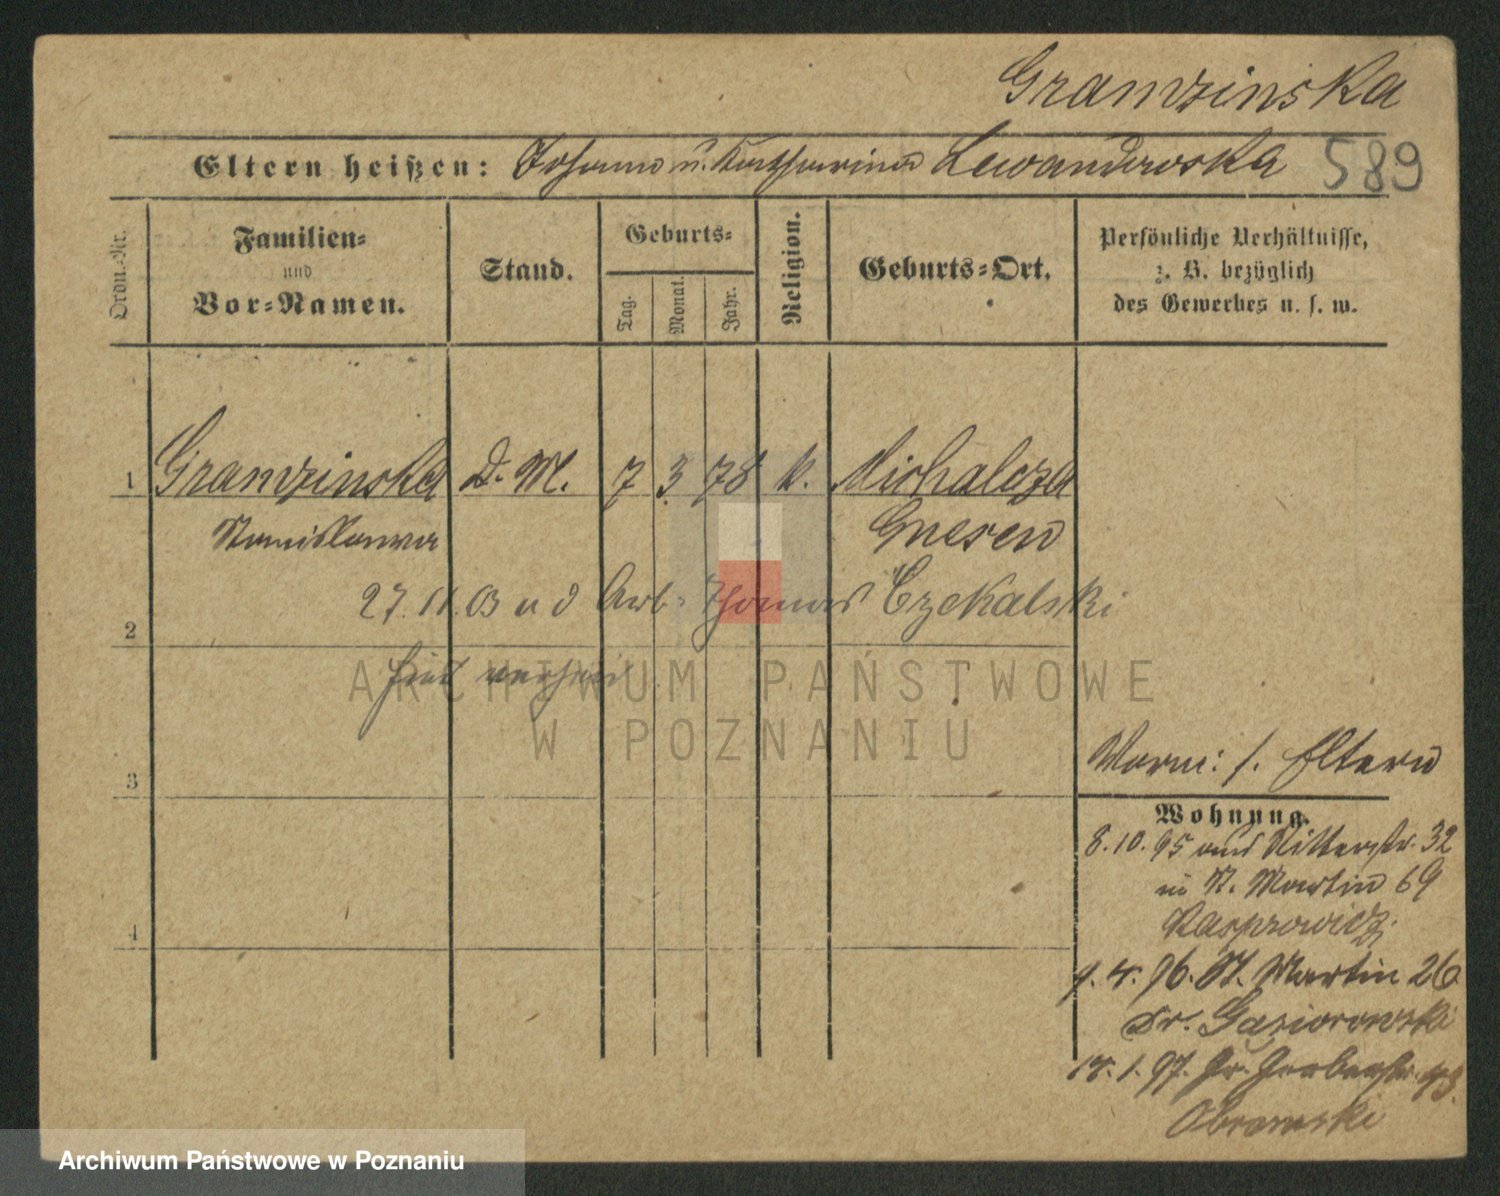 Granzinska
Eltern heißen: Johann u. Katharina Lewandowska 589
Ordn.-Nr.
Familien-
und
Vor-Namen.
Stand.
Geburts-
Tag.
Monat.
Jahr.
Religion.
Geburts-Ort.
Persönliche Verhältnisse,
z. B. bezüglich
des Gewerbes u. s. w.
1 D. M. 7 3 78 k. Michalcza
Stanislawa Gnesen
27.11.03 Arb. Thomas Czekalski
2
ARCHIWUM PAŃSTWOWE
W POZNANIU
3
s. Eltern
Wohnung.
8.10.95 aus Ritterstr. 32
in St. Martin 69
Kasprowicz
4
96. St. Martin 26
Dr. Gasiorowski
1.97. Gr. Gerberstr.
Archiwum Państwowe w Poznaniu